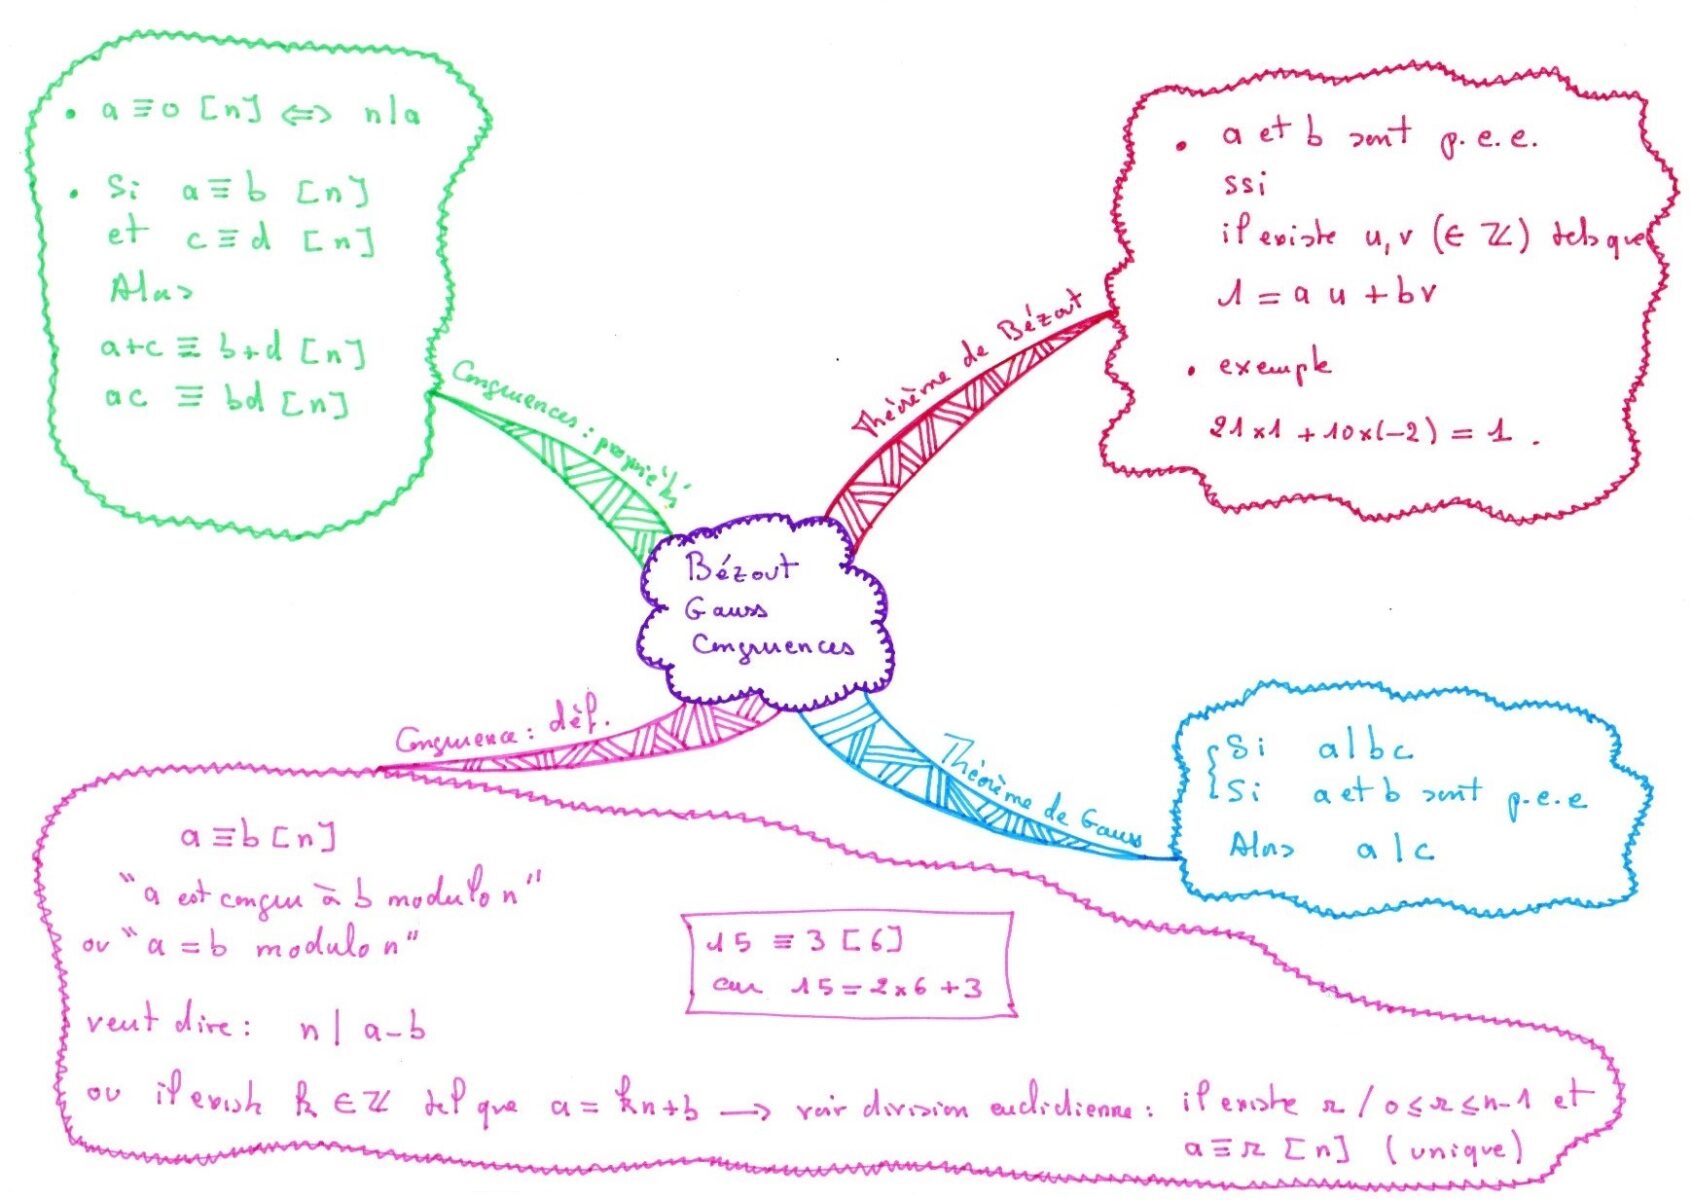 • a ≡ 0 [n] ⇔ n|a
• Si a ≡ b [n]
et c ≡ d [n]
Alors
a+c ≡ b+d [n]
ac ≡ bd [n]
Congruences : propriétés
Théorème de Bézout
• a et b sont p.e.e.
ssi
il existe u, v (∈ ℤ) tels que
1 = a u + b v
• exemple
21×1 + 10×(-2) = 1 .
Bézout
Gauss
Congruences
Congruence : déf.
Théorème de Gauss
Si a | b c
Si a et b sont p.e.e
Alors a | c
a ≡ b [n]
"a est congru à b modulo n"
ou "a = b modulo n"
veut dire : n | a-b
ou il existe k ∈ ℤ tel que a = kn+b → voir division euclidienne : il existe r / 0 ≤ r ≤ n-1 et
a ≡ r [n] (unique)
15 ≡ 3 [6]
car 15 = 2×6 + 3